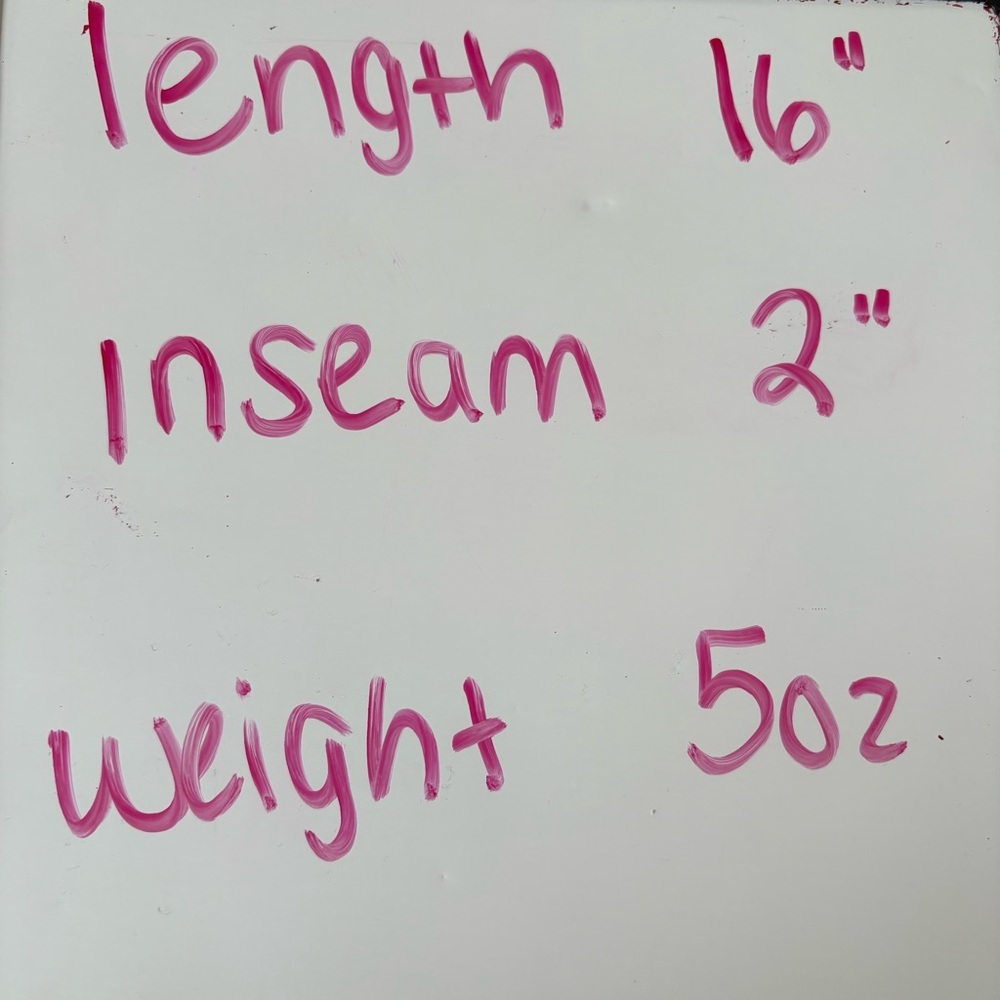 length 16"
Inseam 2"
weight 5oz